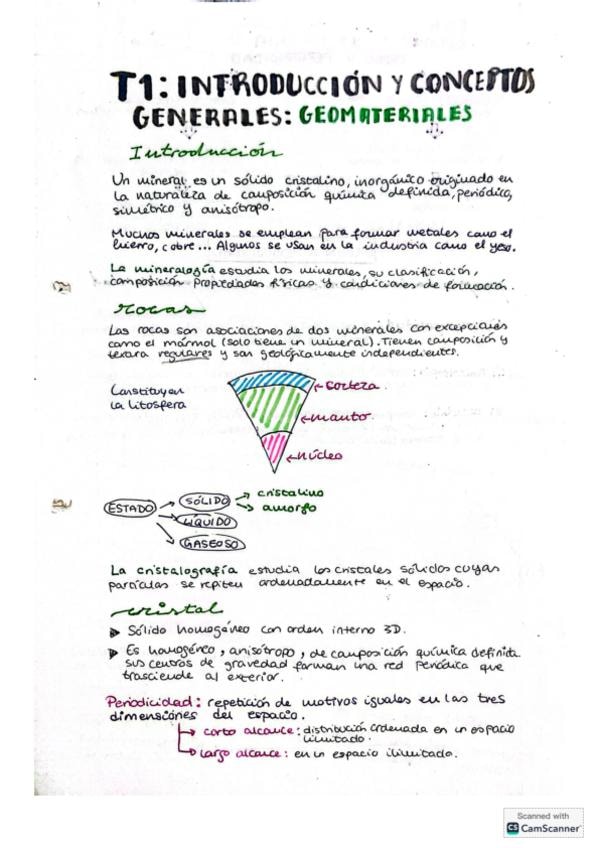 T1: INTRODUCCIÓN Y CONCEPTOS
GENERALES: GEOMATERIALES
Introducción
Un mineral es un sólido cristalino, inorgánico originado en
la naturaleza de composición química definida, periódico,
simétrico y anisótropo.
Muchos minerales se emplean para formar metales como el
hierro, cobre... Algunos se usan en la industria como el yeso.
La mineralogía estudia los minerales, su clasificación,
composición propiedades físicas y condiciones de formación.
rocas
Las rocas son asociaciones de dos minerales con excepciones
como el mármol (solo tiene un mineral). Tienen composición y
textura regulares y son geológicamente independientes.
Constituyen
la litosfera
corteza.
manto.
núcleo
ESTADO
SÓLIDO
cristalino
amorfo
LÍQUIDO
GASEOSO
La cristalografía estudia los cristales sólidos cuyas
partículas se repiten ordenadamente en el espacio.
cristal
Sólido homogéneo con orden interno 3D.
Es homogéneo, anisótropo, de composición química definida
sus centros de gravedad forman una red periódica que
trasciende al exterior.
Periodicidad: repetición de motivos iguales en las tres
dimensiones del espacio.
corto alcance: distribución ordenada en un espacio
limitado.
largo alcance: en un espacio ilimitado.
Scanned with
CS CamScanner